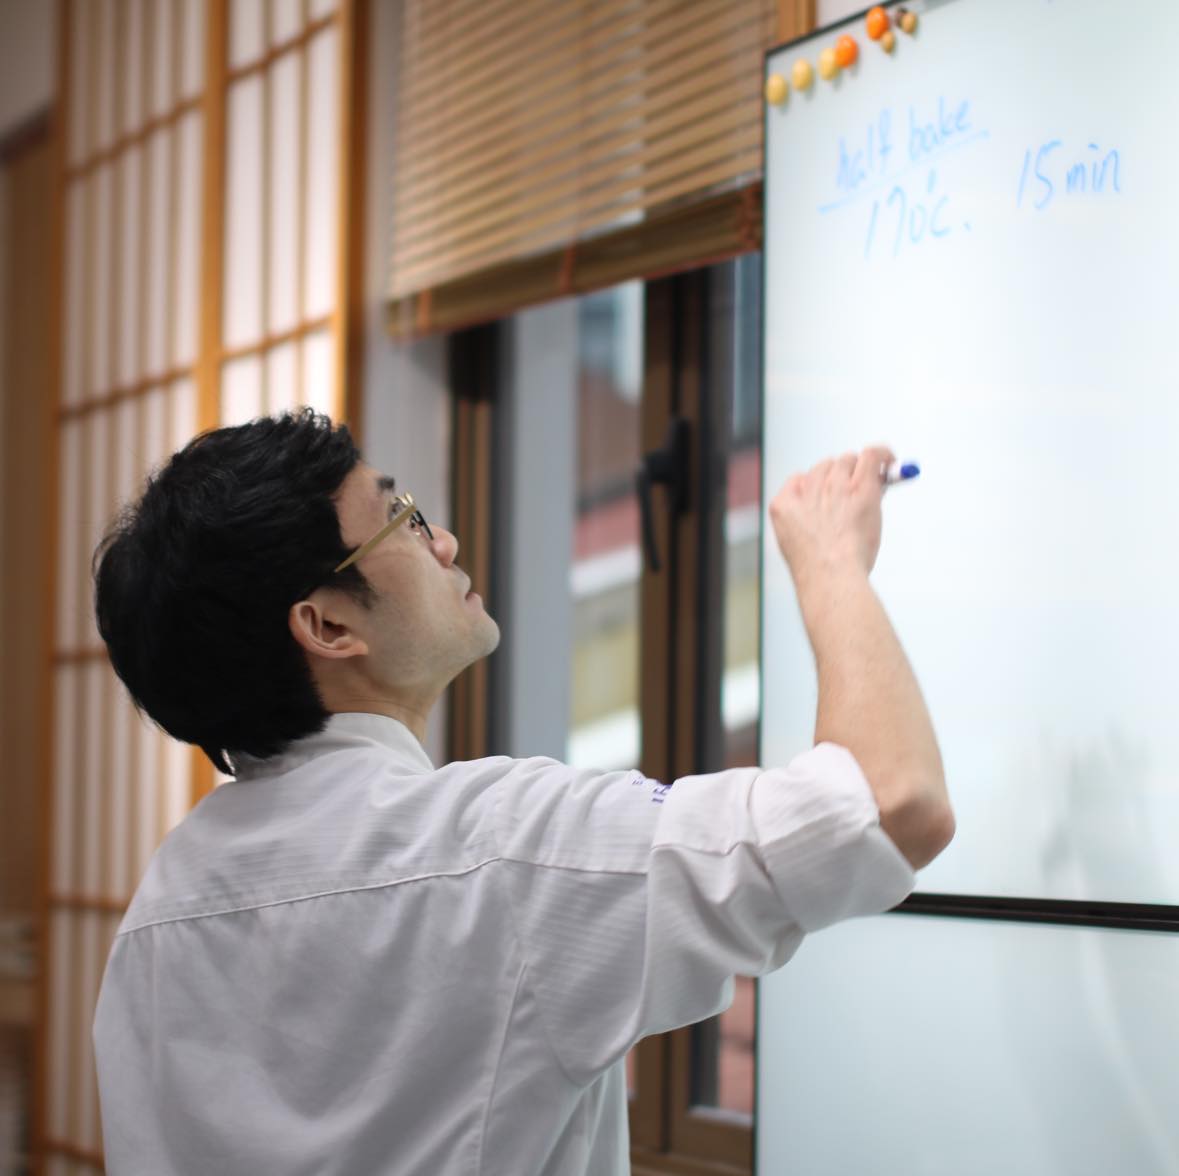 half bake
170℃. 15 min